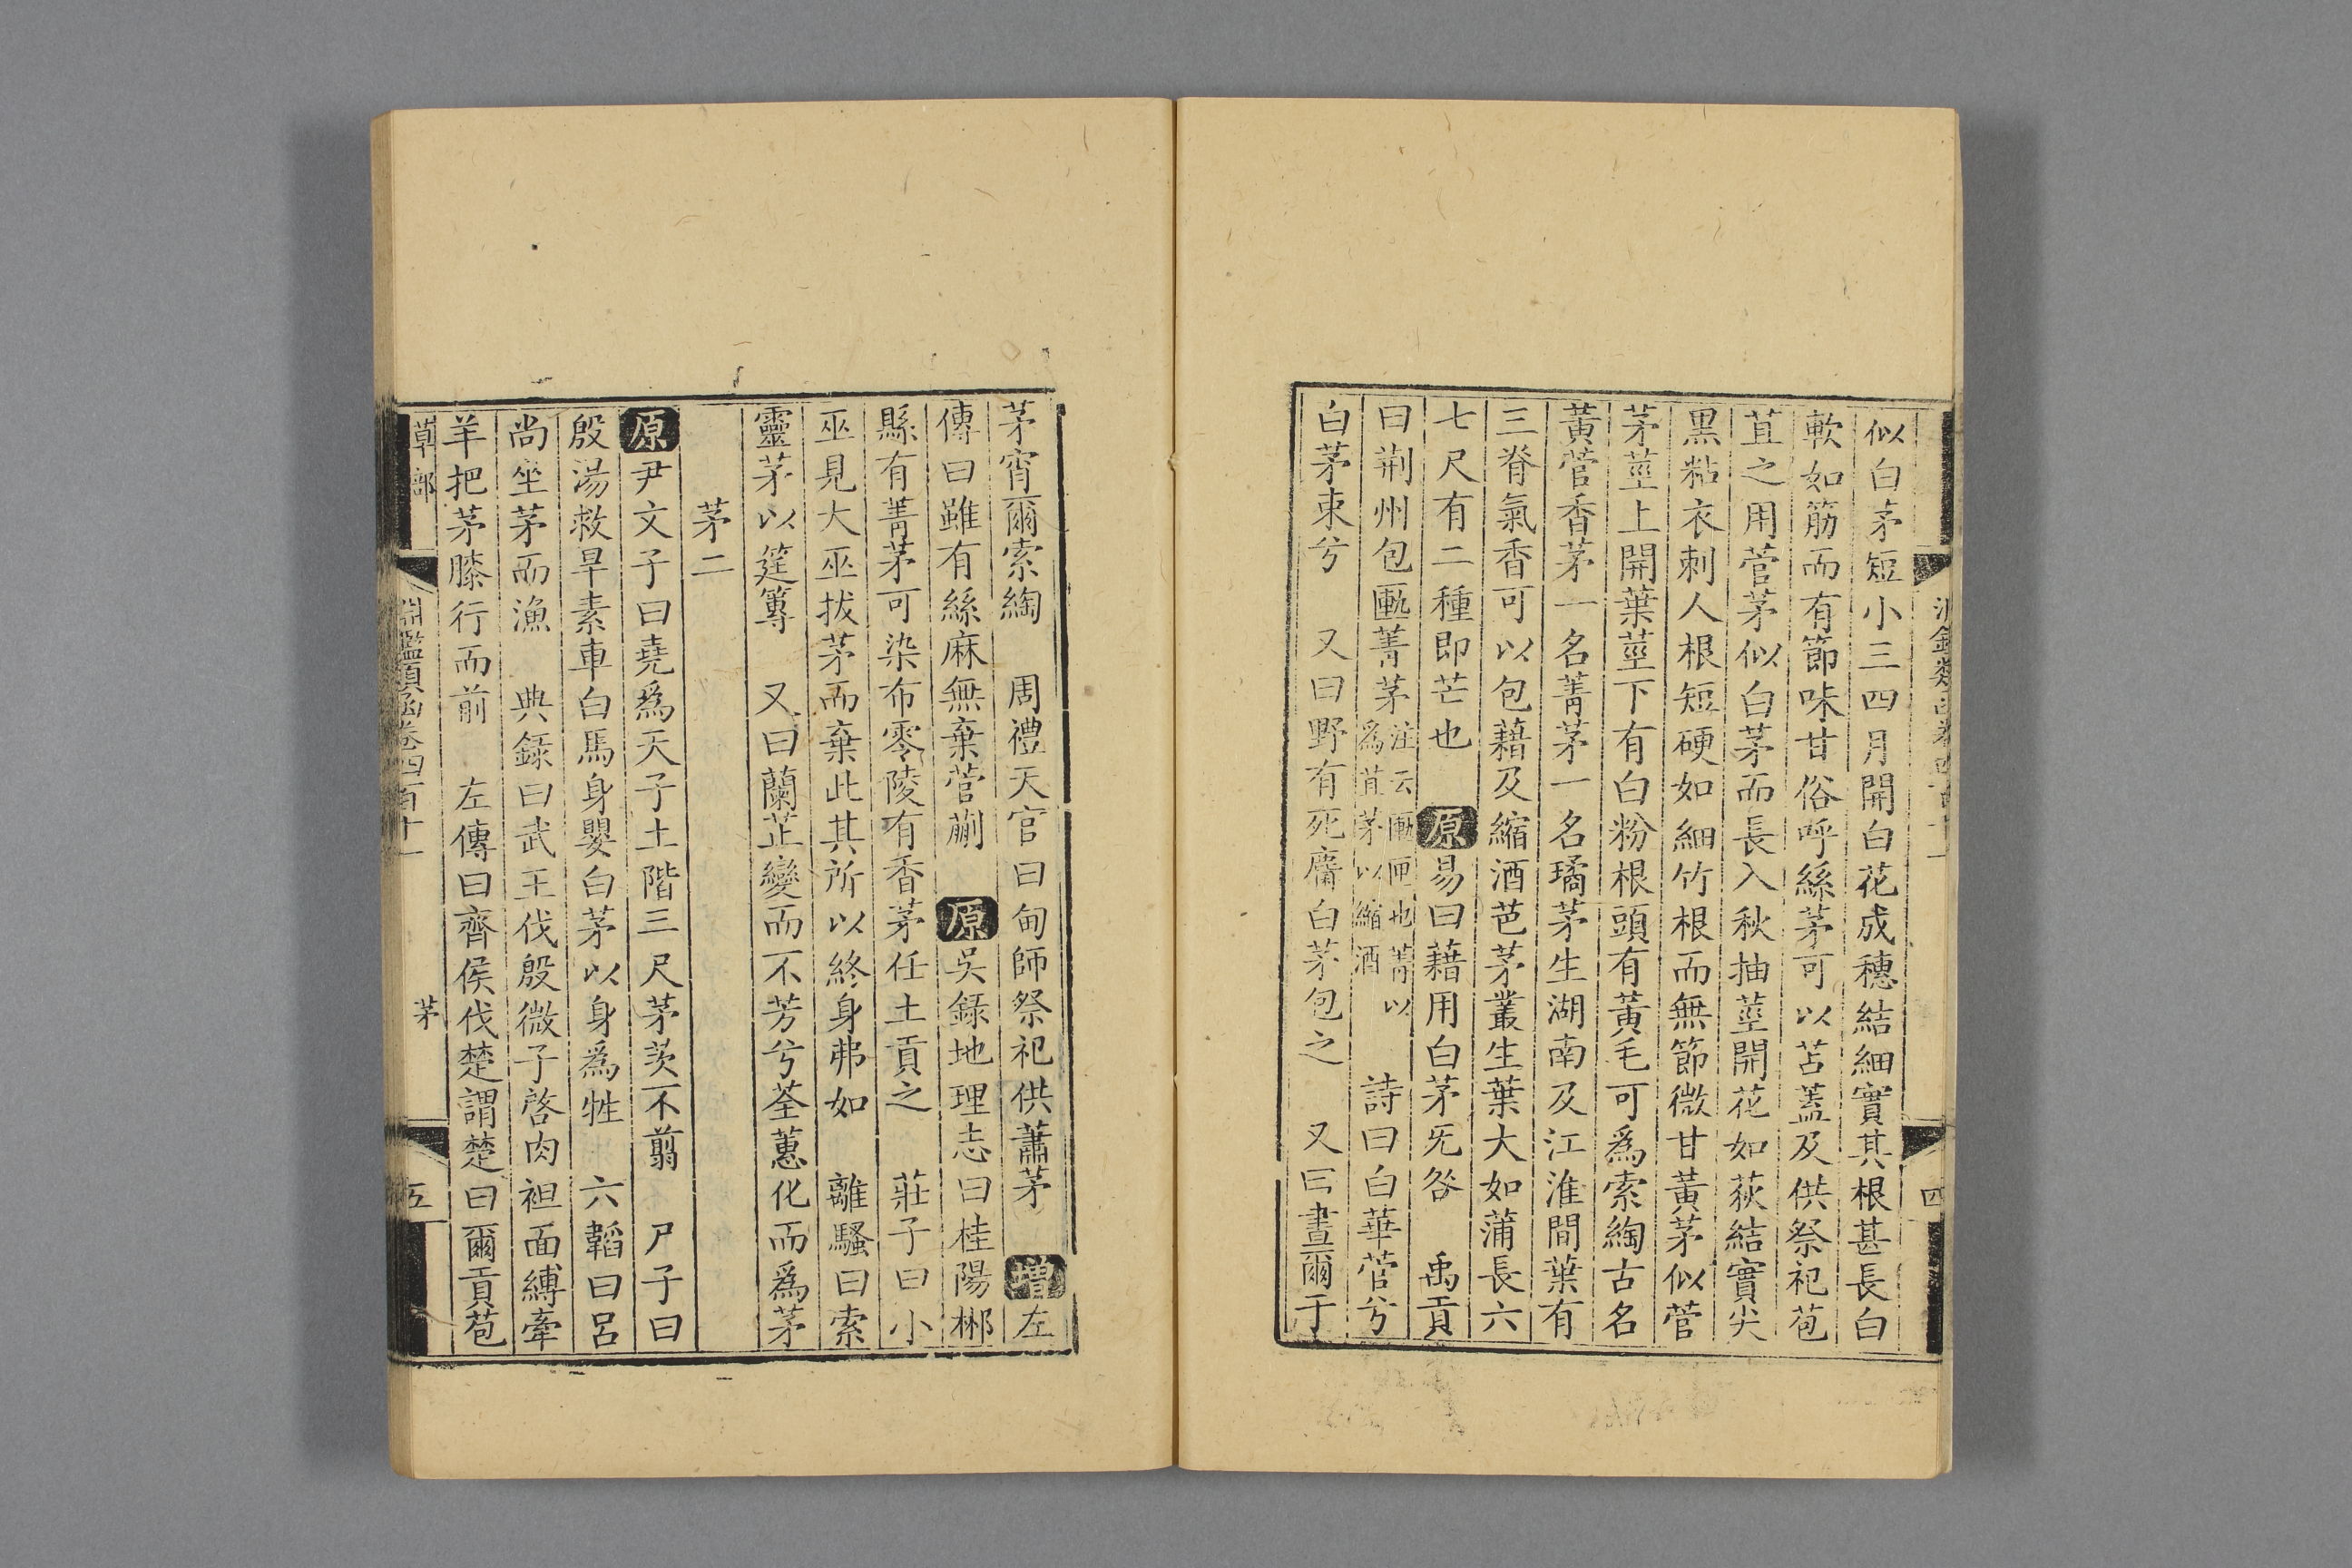 似白茅短小三四月開白花成穗結細實其根甚長白
軟如筋而有節味甘俗呼絲茅可以苫蓋及供祭祀苞
苴之用菅茅似白茅而長入秋抽莖開花如荻結實尖
黑粘衣刺人根短硬如細竹根而無節微甘黃茅似菅
茅莖上開葉莖下有白粉根頭有黃毛可為索綯古名
黃菅香茅一名菁茅一名璚茅生湖南及江淮間葉有
三脊氣香可以包藉及縮酒芭茅叢生葉大如蒲長六
七尺有二種即芒也 原易曰藉用白茅无咎 禹貢
曰荆州包匭菁茅 注云匭匣也菁以為苴茅以縮酒 詩曰白華菅兮
白茅束兮 又曰野有死麕白茅包之 又曰晝爾于
四
茅宵爾索綯 周禮天官曰甸師祭祀供蕭茅 增左
傳曰雖有絲麻無棄菅蒯 原吳錄地理志曰桂陽郴
縣有菁茅可染布零陵有香茅任土貢之 莊子曰小
巫見大巫拔茅而棄此其所以終身弗如 離騷曰索
靈茅以筳篿 又曰蘭芷變而不芳兮荃蕙化而為茅
茅二
原尹文子曰堯為天子土階三尺茅茨不翦 尸子曰
殷湯救旱素車白馬身嬰白茅以身為牲 六韜曰呂
尚坐茅而漁 典錄曰武王伐殷微子啓肉袒面縛牽
羊把茅膝行而前 左傳曰齊侯伐楚謂楚曰爾貢苞
草部 淵鑑類函卷四百十一 茅 五